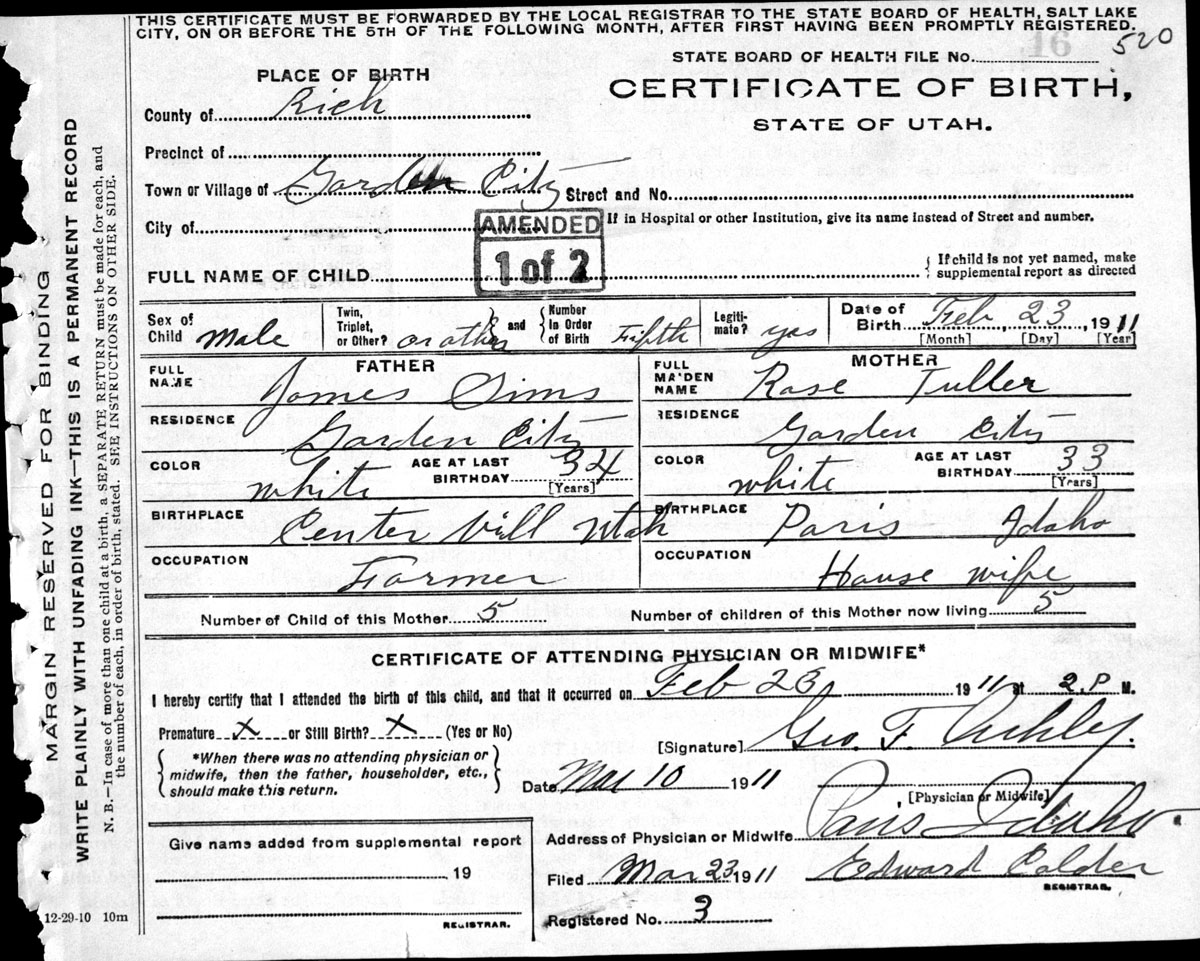 THIS CERTIFICATE MUST BE FORWARDED BY THE LOCAL REGISTRAR TO THE STATE BOARD OF HEALTH, SALT LAKE
CITY, ON OR BEFORE THE 5TH OF THE FOLLOWING MONTH, AFTER FIRST HAVING BEEN PROMPTLY REGISTERED.
16 520
STATE BOARD OF HEALTH FILE No.
PLACE OF BIRTH
CERTIFICATE OF BIRTH,
STATE OF UTAH.
County of Rich
Precinct of
Town or Village of Garden City Street and No.
If in Hospital or other Institution, give its name instead of Street and number.
City of
AMENDED
1 of 2
FULL NAME OF CHILD
If child is not yet named, make
supplemental report as directed
Sex of Child Male Twin, Triplet, or Other? or other and Number in Order of Birth Fifth Legiti-mate? yas Date of Birth Feb 23, 1911
[Month] [Day] [Year]
FATHER MOTHER
FULL NAME James Sims FULL MAIDEN NAME Rose Tuller
RESIDENCE Garden City RESIDENCE Garden City
COLOR white AGE AT LAST BIRTHDAY 34 [Years] COLOR white AGE AT LAST BIRTHDAY 33 [Years]
BIRTHPLACE Center Vill Utah BIRTHPLACE Paris Idaho
OCCUPATION Farmer OCCUPATION House wife
Number of Child of this Mother 5 Number of children of this Mother now living 5
CERTIFICATE OF ATTENDING PHYSICIAN OR MIDWIFE*
I hereby certify that I attended the birth of this child, and that it occurred on Feb 23, 1911 at 2 P M.
Premature X or Still Birth? X (Yes or No)
[Signature] Geo. F. Ashley.
*When there was no attending physician or
midwife, then the father, householder, etc.,
should make this return.
Date Mar 10 1911
[Physician or Midwife]
Address of Physician or Midwife Paris Idaho.
Give name added from supplemental report
19
Filed Mar 23 1911 Edward Calder
REGISTRAR.
Registered No. 3
REGISTRAR.
12-29-10 10m
MARGIN RESERVED FOR BINDING
WRITE PLAINLY WITH UNFADING INK—THIS IS A PERMANENT RECORD
N. B.—In case of more than one child at a birth, a SEPARATE RETURN must be made for each, and
the number of each, in order of birth, stated. SEE INSTRUCTIONS ON OTHER SIDE.